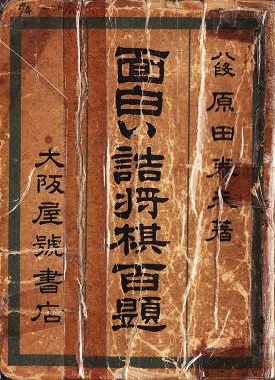 八段 原田泰夫著
面白い詰将棋百題
大阪屋號書店